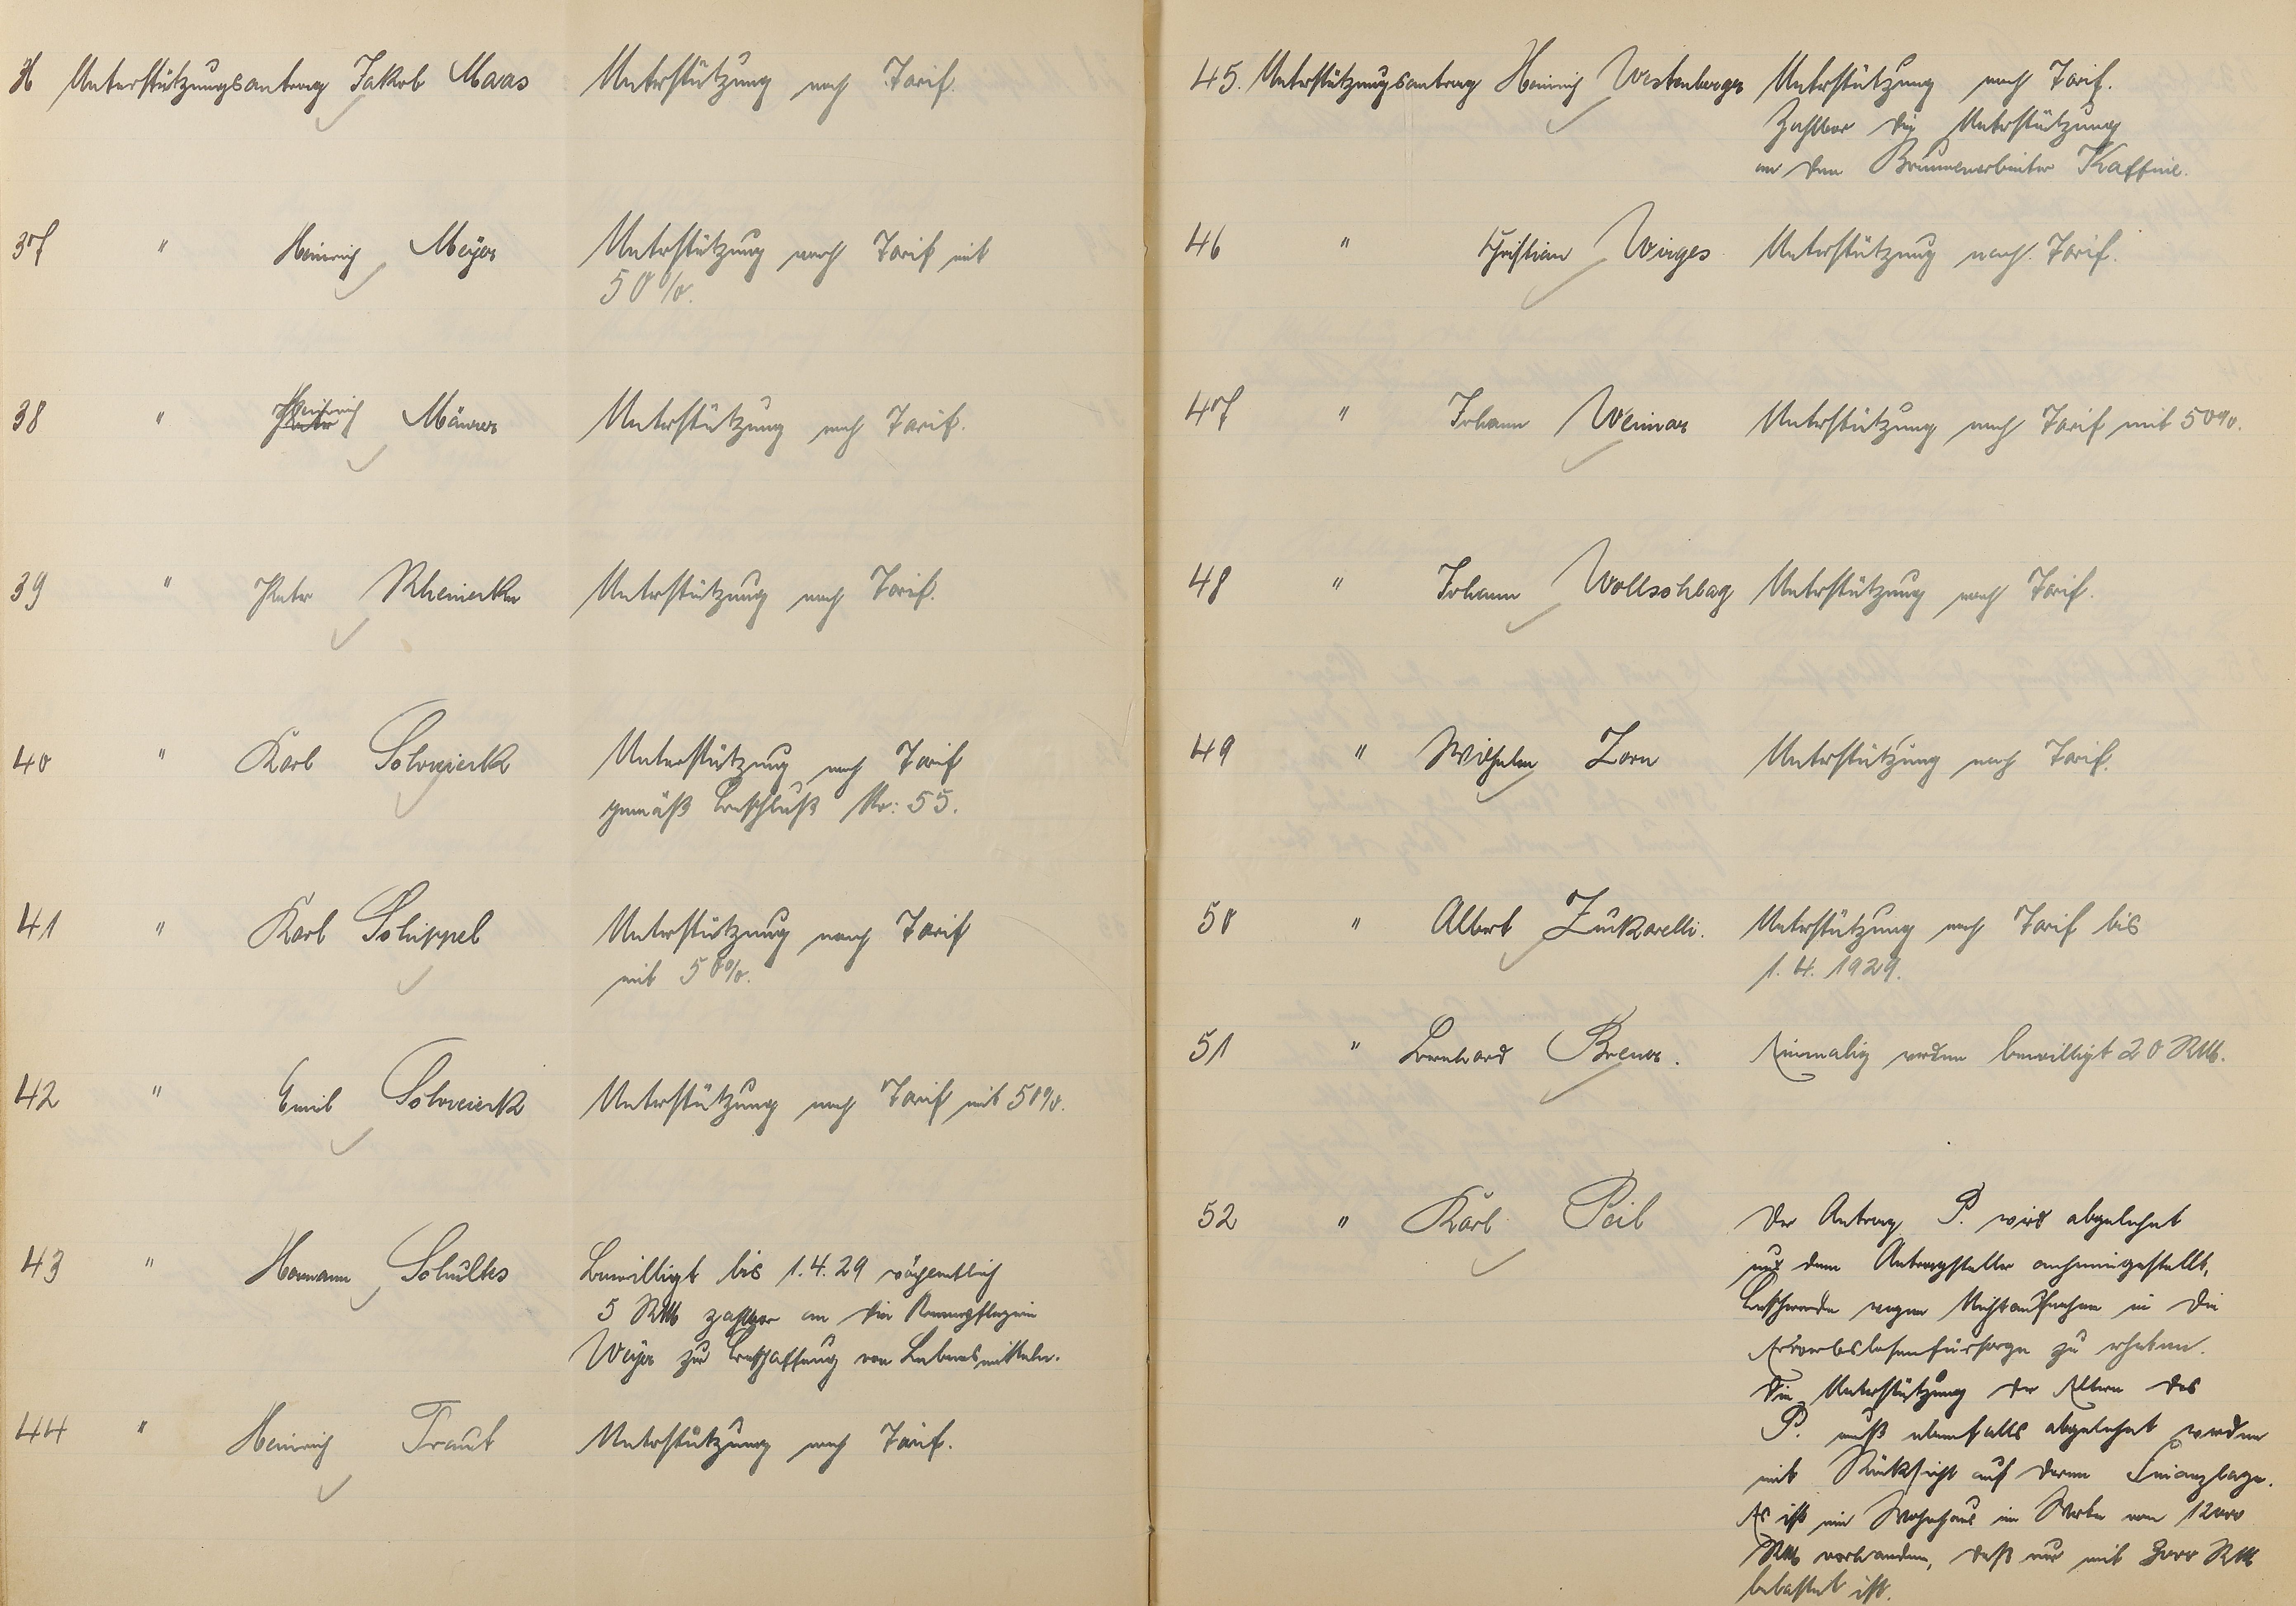 36 Unterstützungsantrag Jakob Maas Unterstützung nach Tarif.
37 " Heinrich Meyer Unterstützung nach Tarif mit
50%.
38 " Heinrich Männer Unterstützung nach Tarif.
39 " Peter Unterstützung nach Tarif.
40 " Karl Schwierk Unterstützung nach Tarif
gemäß Beschluß Nr: 55.
41 " Karl Schippel Unterstützung nach Tarif
mit 50%.
42 " Emil Schwierk Unterstützung nach Tarif mit 50%.
43 " Hermann Schultes Bewilligt bis 1.4.29 wöchentlich
5 RM zahlbar an die Armenpflegerin
Weyer zur Beschaffung von Lebensmitteln.
44 " Heinrich Traut Unterstützung nach Tarif.
45. Unterstützungsantrag Heinrich Westenberger Unterstützung nach Tarif.
Zahlbar die Unterstützung
an den Brunnenarbeiter Kaffine.
46 " Christian Wirges Unterstützung nach Tarif.
47 " Johann Weimar Unterstützung nach Tarif mit 50%.
48 " Johann Wollschlag Unterstützung nach Tarif.
49 " Wilhelm Zorn Unterstützung nach Tarif.
50 " Albert Zukarelli. Unterstützung nach Tarif bis
1. 4. 1929.
51 " Bernhard Breuer. Einmalig werden bewilligt 20 RM.
52 " Karl Peil Der Antrag P. wird abgelehnt
und dem Antragsteller anheimgestellt,
Beschwerde wegen Nichtaufnahme in die
Erwerbslosenfürsorge zu erheben.
Die Unterstützung der Eltern des
P. muß ebenfalls abgelehnt werden
mit Rücksicht auf deren Finanzlage.
Es ist ein Wohnhaus im Werte von 12000
RM vorhanden, daß nur mit RM
belastet ist.